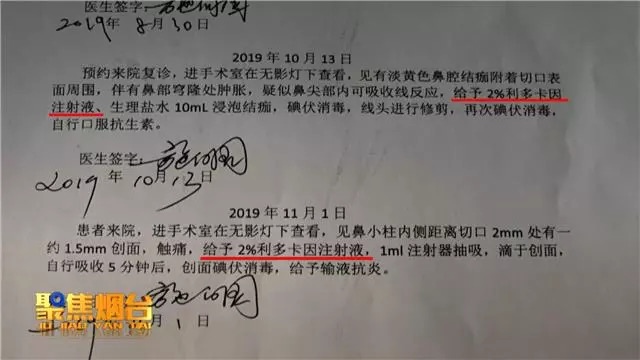 医生签字:
2019 年 8 月 30 日
2019 年 10 月 13 日
预约来院复诊，进手术室在无影灯下查看，见有淡黄色鼻腔结痂附着切口表
面周围，伴有鼻部穹隆处肿胀，疑似鼻尖部内可吸收线反应，给予 2%利多卡因
注射液、生理盐水 10mL 浸泡结痂，碘伏消毒，线头进行修剪，再次碘伏消毒，
自行口服抗生素。
医生签字:
2019 年 10 月 13 日
2019 年 11 月 1 日
患者来院，进手术室在无影灯下查看，见鼻小柱内侧距离切口 2mm 处有一
约 1.5mm 创面，触痛，给予 2%利多卡因注射液，1ml 注射器抽吸，滴于创面，
自行吸收 5 分钟后，创面碘伏消毒，给予输液抗炎。
聚焦烟台
JU JIAO YAN TAI
月 1 日